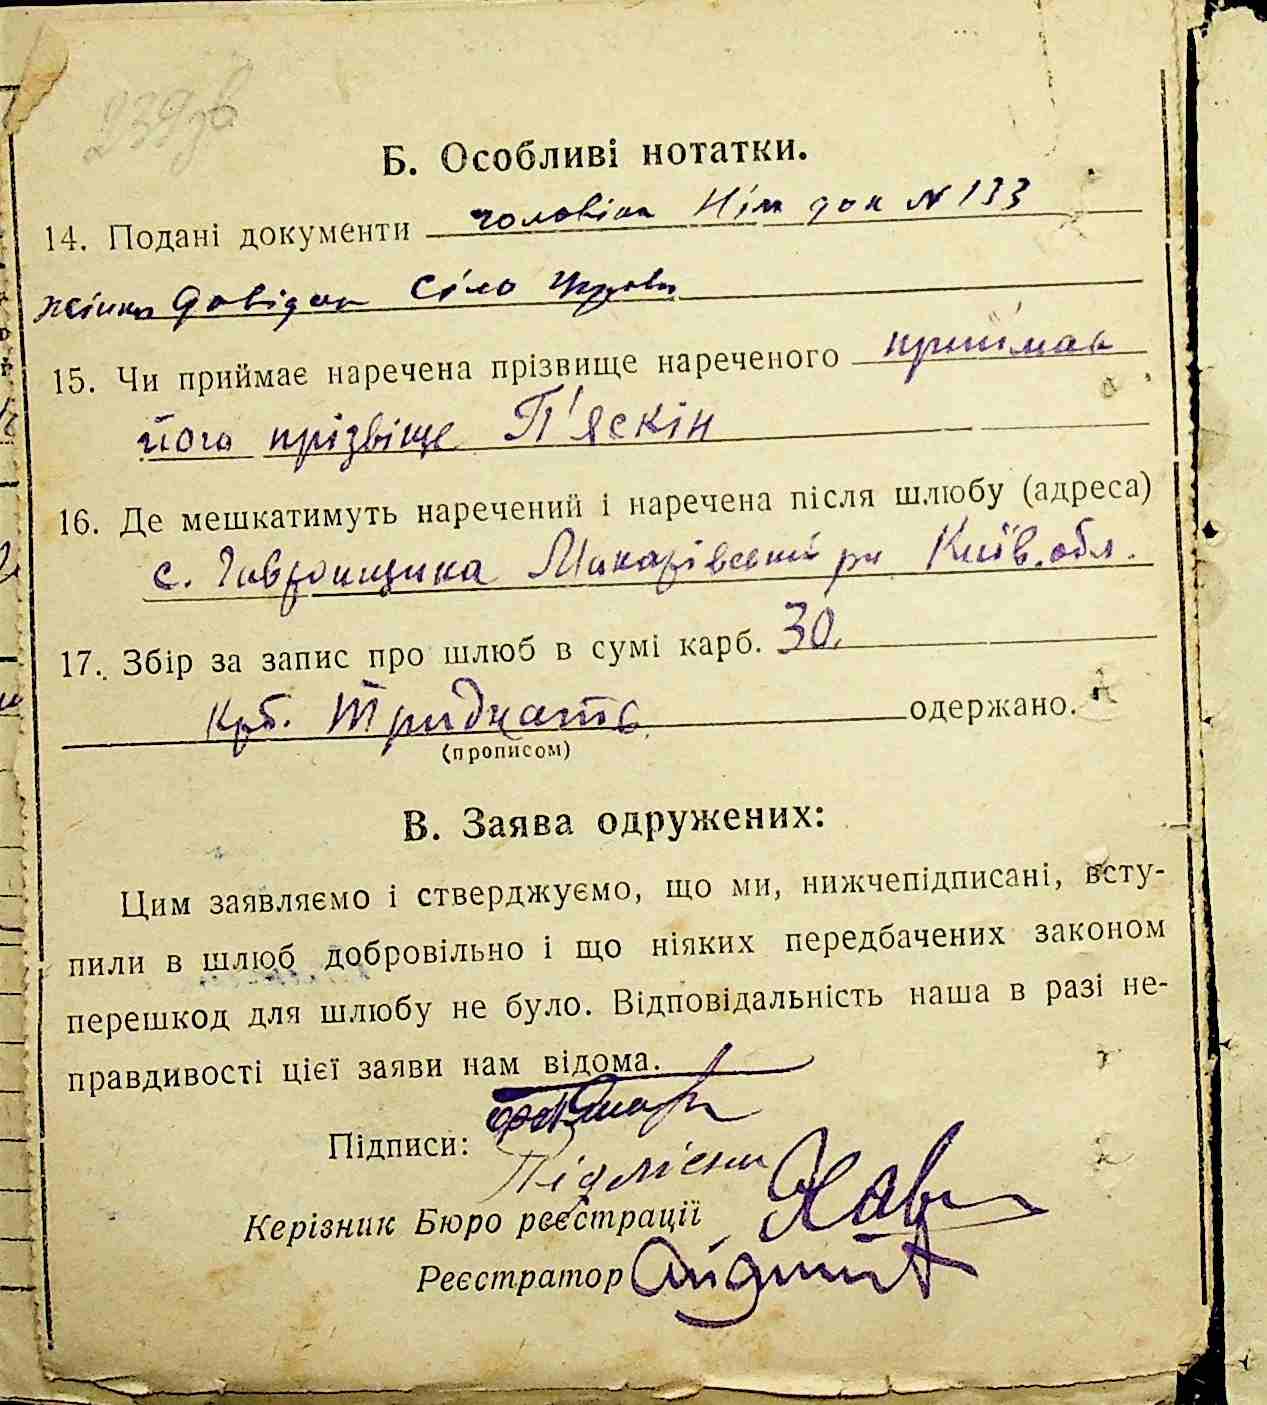 239зв
Б. Особливі нотатки.
14. Подані документи чоловіка Нім док № 133
жінки довідка Сіло управи
15. Чи приймає наречена прізвище нареченого приймає
його прізвіще П'яскін
16. Де мешкатимуть наречений і наречена після шлюбу (адреса)
с. Гавронщина Макарівський рн Київ. обл.
17. Збір за запис про шлюб в сумі карб. 30.
Крб. Тридцать одержано.
(прописом)
В. Заява одружених:
Цим заявляємо і стверджуємо, що ми, нижчепідписані, всту-
пили в шлюб добровільно і що ніяких передбачених законом
перешкод для шлюбу не було. Відповідальність наша в разі не-
правдивості цієї заяви нам відома.
Підписи:
Керізник Бюро реєстрації
Реєстратор